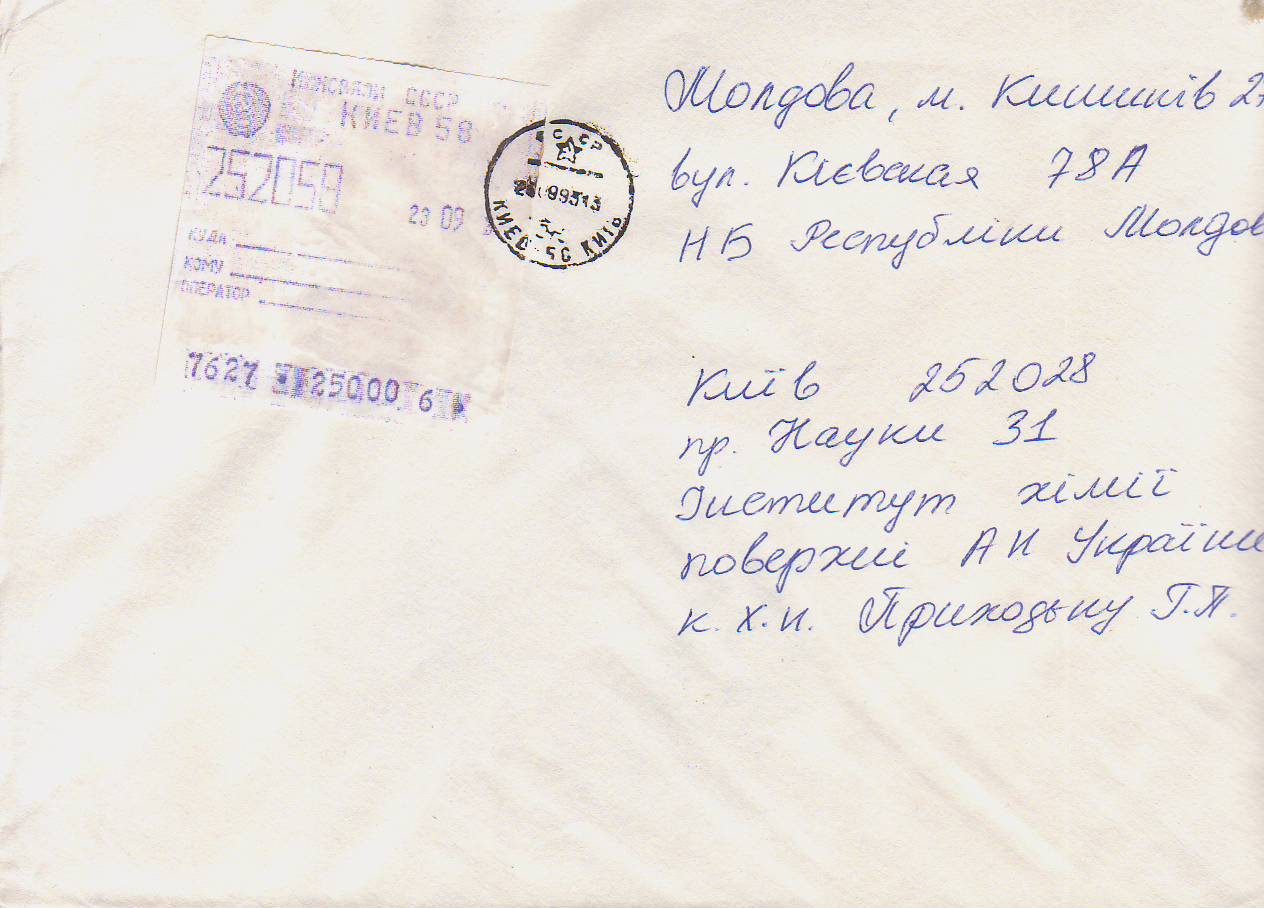 МИНСВЯЗИ СССР
КИЕВ 58
252058
23 09
КУДА
КОМУ
ОПЕРАТОР
7627 25000 6
СССР
КИЕВ 58 КИЇВ
Молдова, м. Кишинів 2
вул. Кієвская 78А
НБ Республіки Молдов
Київ 252028
пр. Науки 31
Інститут хімії
поверхні АН України
к. х. н. Приходьку Г.П.